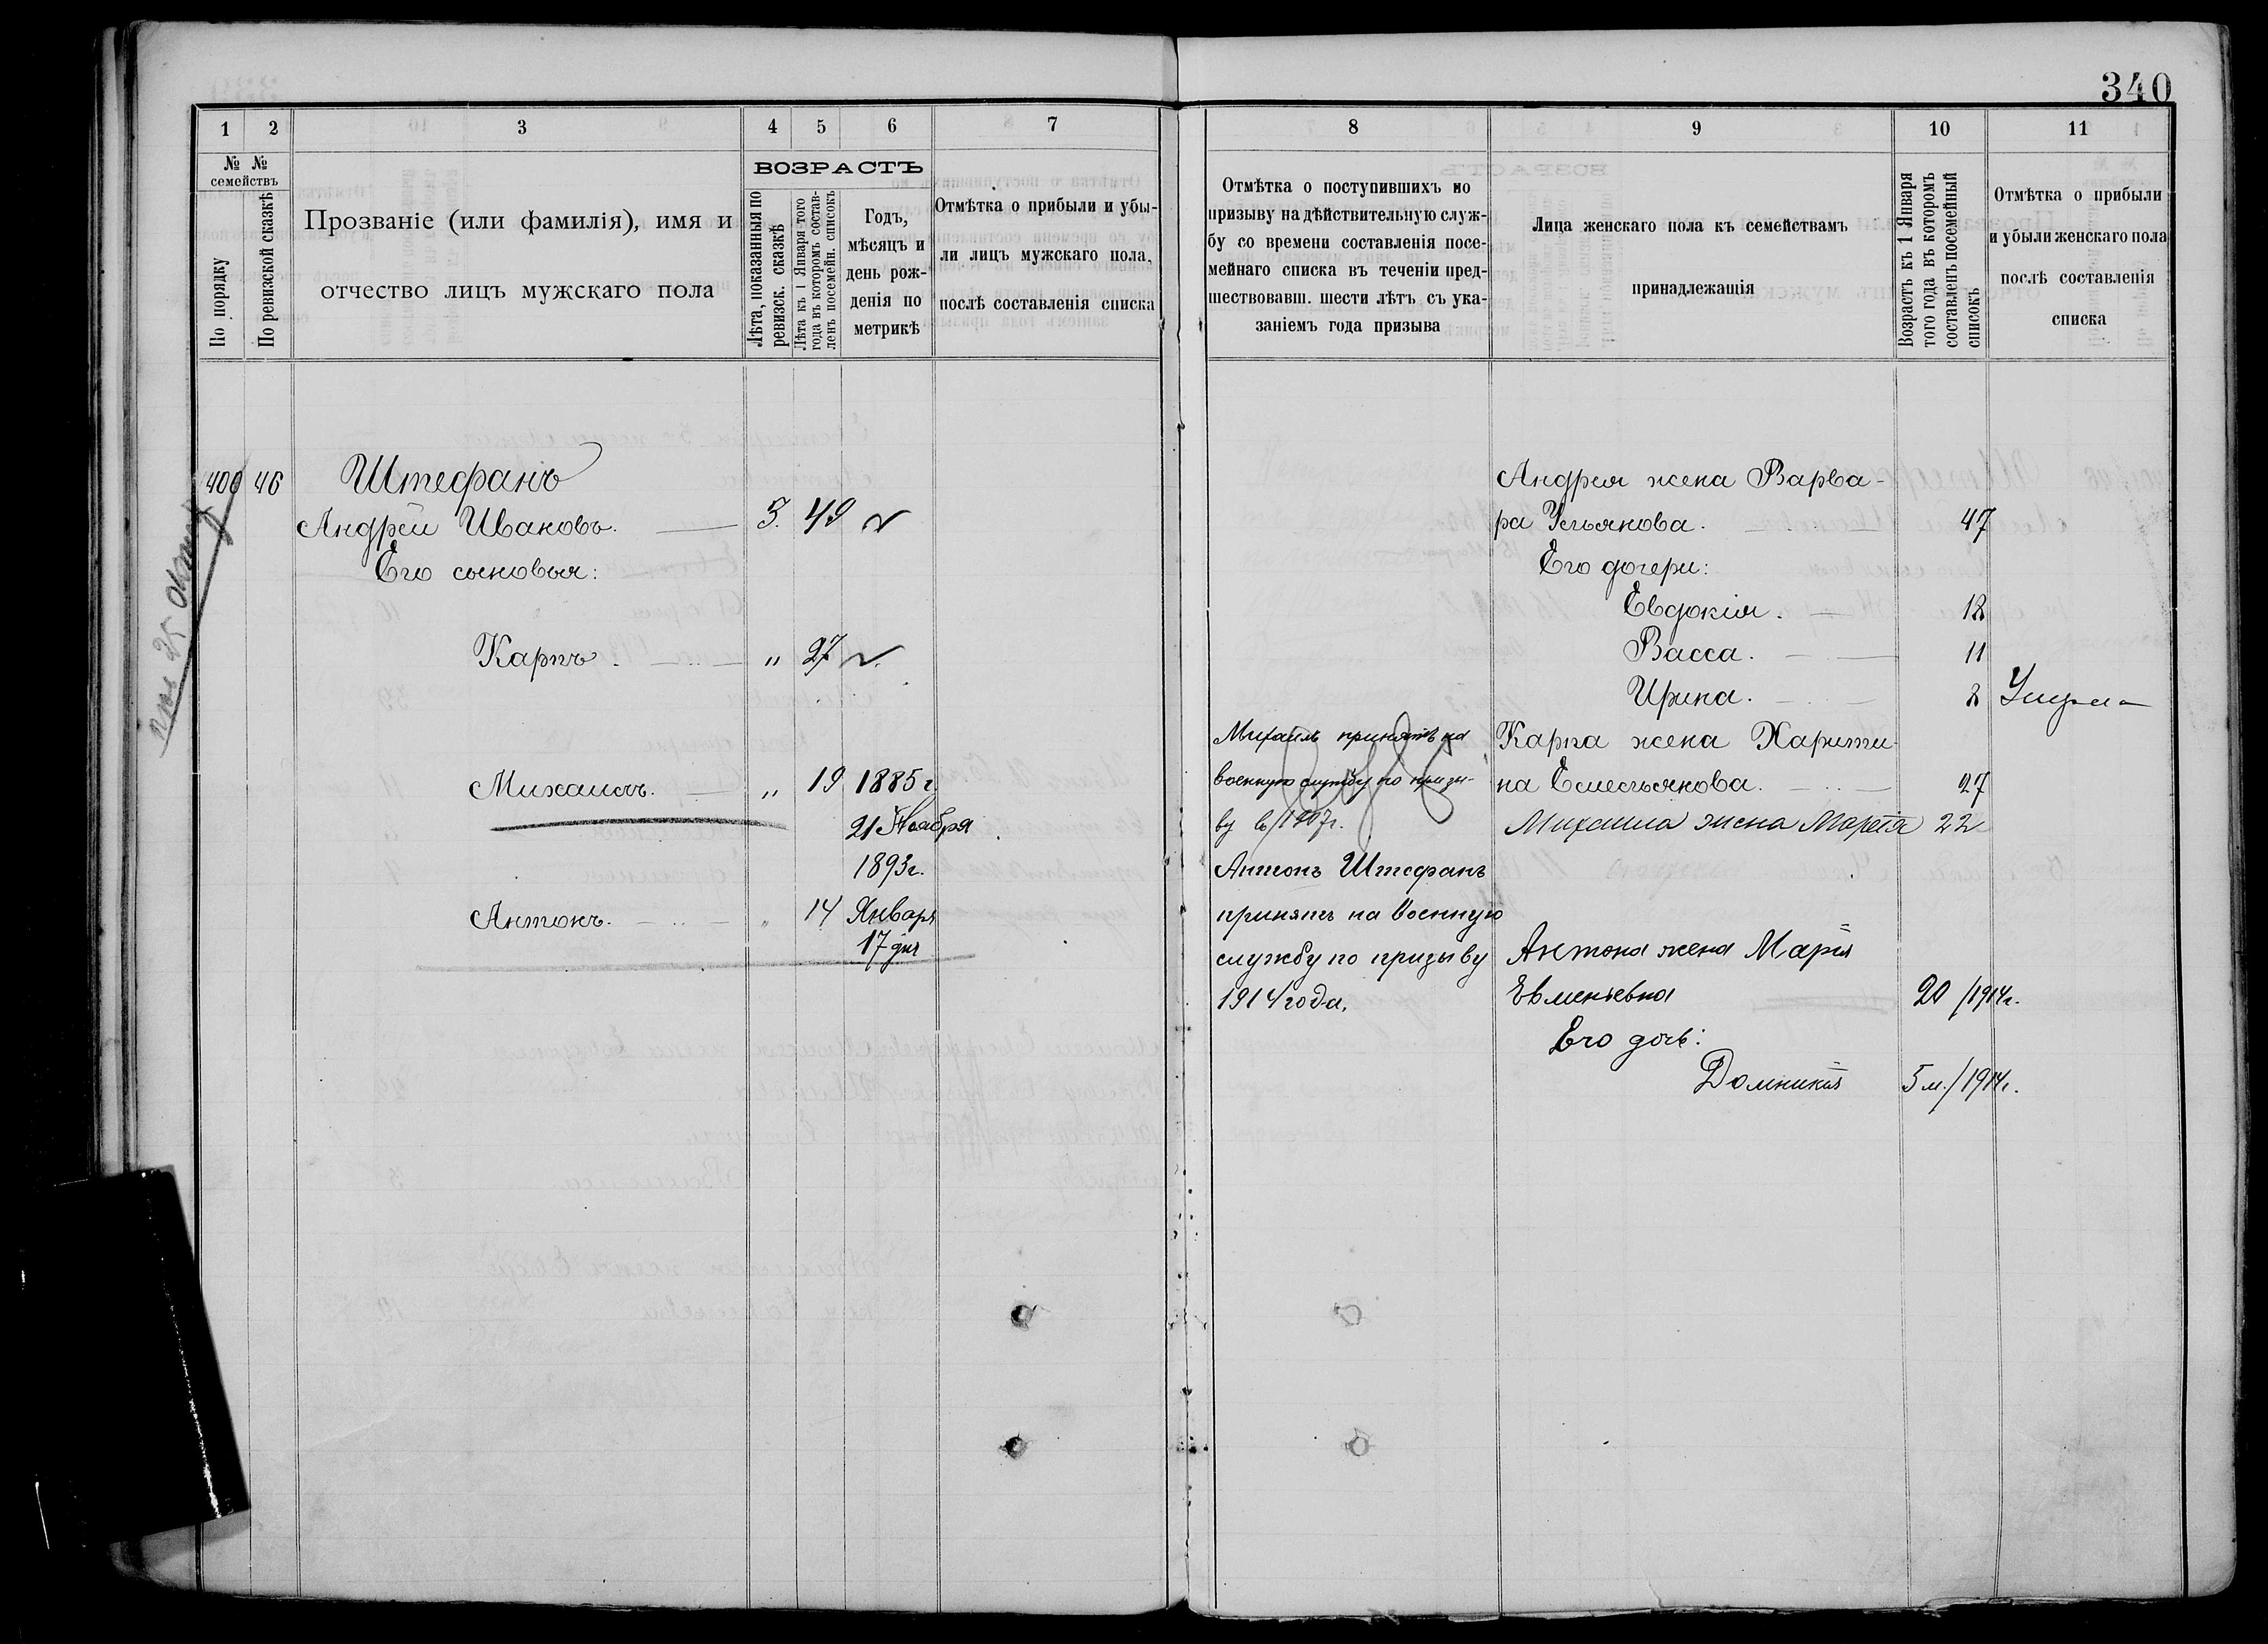 340
1 2 3 4 5 6 7
№ № семействъ
По порядку
По ревизской сказкѣ
Прозваніе (или фамилія), имя и
отчество лицъ мужскаго пола
ВОЗРАСТЪ
Лѣта, показанныя по
ревизск. сказкѣ
Лѣта къ 1 Января того
года въ которомъ состав-
ленъ посемейн. списокъ
Годъ,
мѣсяцъ и
день рож-
денія по
метрикѣ
Отмѣтка о прибыли и убы-
ли лицъ мужскаго пола,
послѣ составленія списка
400 46 Штефанъ
Андрей Ивановъ. 3. 49
Его сыновья:
Карпъ. " 27
Михаилъ. " 19 1885 г.
21 Ноября
1893 г.
Антонъ. " 14 Января
17 дня
8 9 10 11
Отмѣтка о поступившихъ по
призыву на дѣйствительную служ-
бу со времени составленія посе-
мейнаго списка въ теченіи пред-
шествовавш. шести лѣтъ съ ука-
заніемъ года призыва
Лица женскаго пола къ семействамъ
принадлежащія
Возрастъ къ 1 Января
того года въ которомъ
составленъ посемейный
списокъ
Отмѣтка о прибыли
и убыли женскаго пола
послѣ составленія
списка
Андрея жена Варва-
ра Ульянова. 47
Его дочери:
Евдокія. 12
Васса. 11
Ирина. 2
Михаилъ принятъ на
военную службу по призы-
ву въ 1907 г.
Карпа жена Харити-
на Емельянова. 27
Михаила жена Марія 22
Антонъ Штефанъ
принятъ на военную
службу по призыву
1914 года.
Антона жена Марія
Евменьевна 20 /1914 г.
Его дочь:
Домникія 5 м. /1914 г.